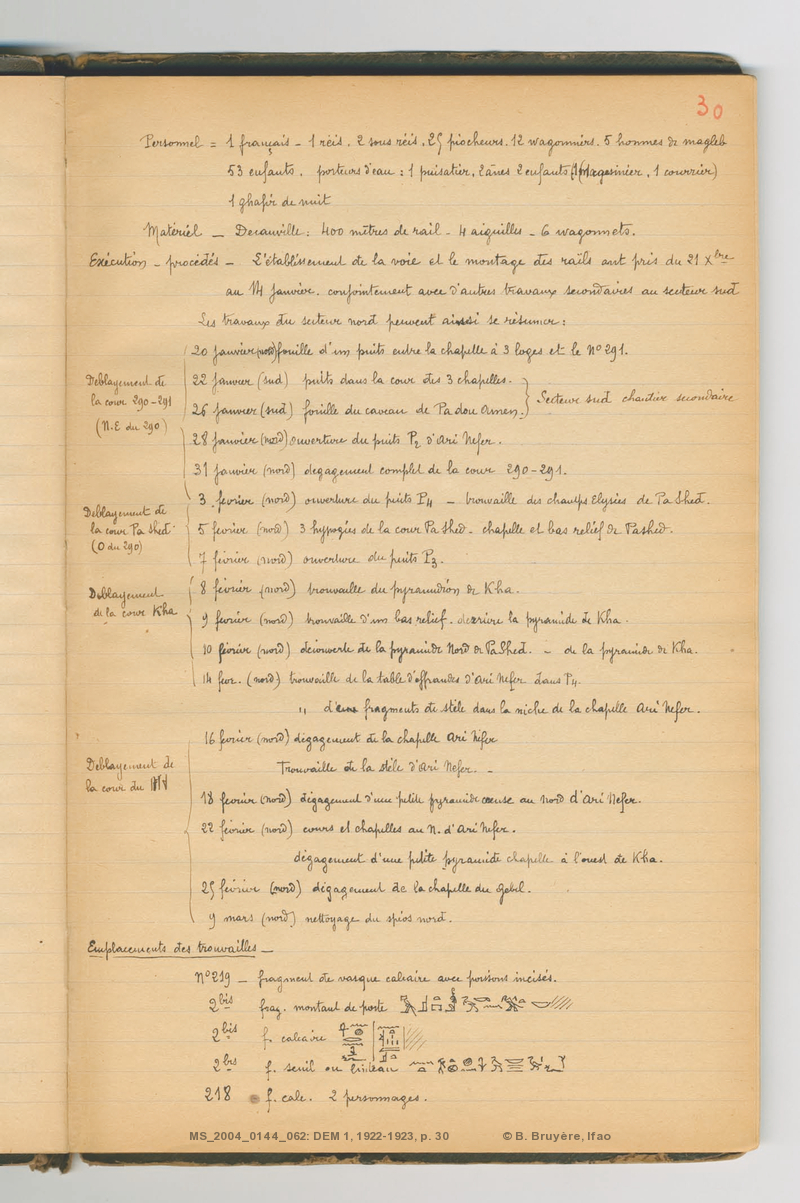 30
Personnel = 1 français - 1 réis. 2 sous réis. 25 piocheurs. 12 wagonniers. 5 hommes de magleb
53 enfants. porteurs d'eau : 1 puisatier, 2 ânes 2 enfants (1 magasinier, 1 courrier)
1 ghafir de nuit
Matériel — Decauville: 400 mètres de rail - 4 aiguilles - 6 wagonnets.
Exécution - procédés - L'établissement de la voie et le montage des rails ont pris du 21 Xbre
au 14 Janvier. conjointement avec d'autres travaux secondaires au secteur sud
Les travaux du secteur nord peuvent ainsi se résumer :
20 Janvier (nord) fouille d'un puits entre la chapelle à 3 loges et le N° 291.
Déblayement de la cour 290-291 (N.E. du 290)
22 Janvier (sud) puits dans la cour des 3 chapelles.
26 Janvier (sud) fouille du caveau de Padou Amen.
Secteur sud chantier secondaire
28 Janvier (nord) ouverture du puits P2 d'Ari Nefer.
31 Janvier (nord) dégagement complet de la cour 290-291.
3 février (nord) ouverture du puits P4 — trouvaille des champs Elysées de Pa Shed.
Déblayement de la cour Pa Shed (O du 290)
5 février (nord) 3 hypogées de la cour Pa Shed - chapelle et bas relief de Pashed.
7 février (nord) ouverture du puits P3.
Déblayement de la cour Kha
8 février (nord) trouvaille du pyramidion de Kha.
9 février (nord) trouvaille d'un bas relief. derrière la pyramide de Kha.
10 février (nord) découverte de la pyramide Nord de PaShed. - de la pyramide de Kha.
14 fevr. (nord) trouvaille de la table d'offrandes d'Ari Nefer dans P4.
" de fragments de stèle dans la niche de la chapelle Ari Nefer.
16 février (nord) dégagement de la chapelle Ari Nefer
Déblayement de la cour du
Trouvaille de la stèle d'Ari Nefer. -
18 février (nord) dégagement d'une petite pyramide creuse au nord d'Ari Nefer.
22 février (nord) cours et chapelles au N. d'Ari Nefer.
dégagement d'une petite pyramide chapelle à l'ouest de Kha.
25 février (nord) dégagement de la chapelle du Gebil.
9 mars (nord) nettoyage du spéos nord.
Emplacements des trouvailles —
N° 219 — fragment de vasque calcaire avec poissons incisés.
2 bis frag. montant de porte
2 bis f. calcaire
2 bis f. seuil ou linteau
218 f. calc. 2 personnages.
MS_2004_0144_062: DEM 1, 1922-1923, p. 30 © B. Bruyère, Ifao